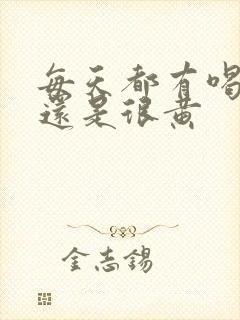 每天都有喝
還是很黃
金志錫